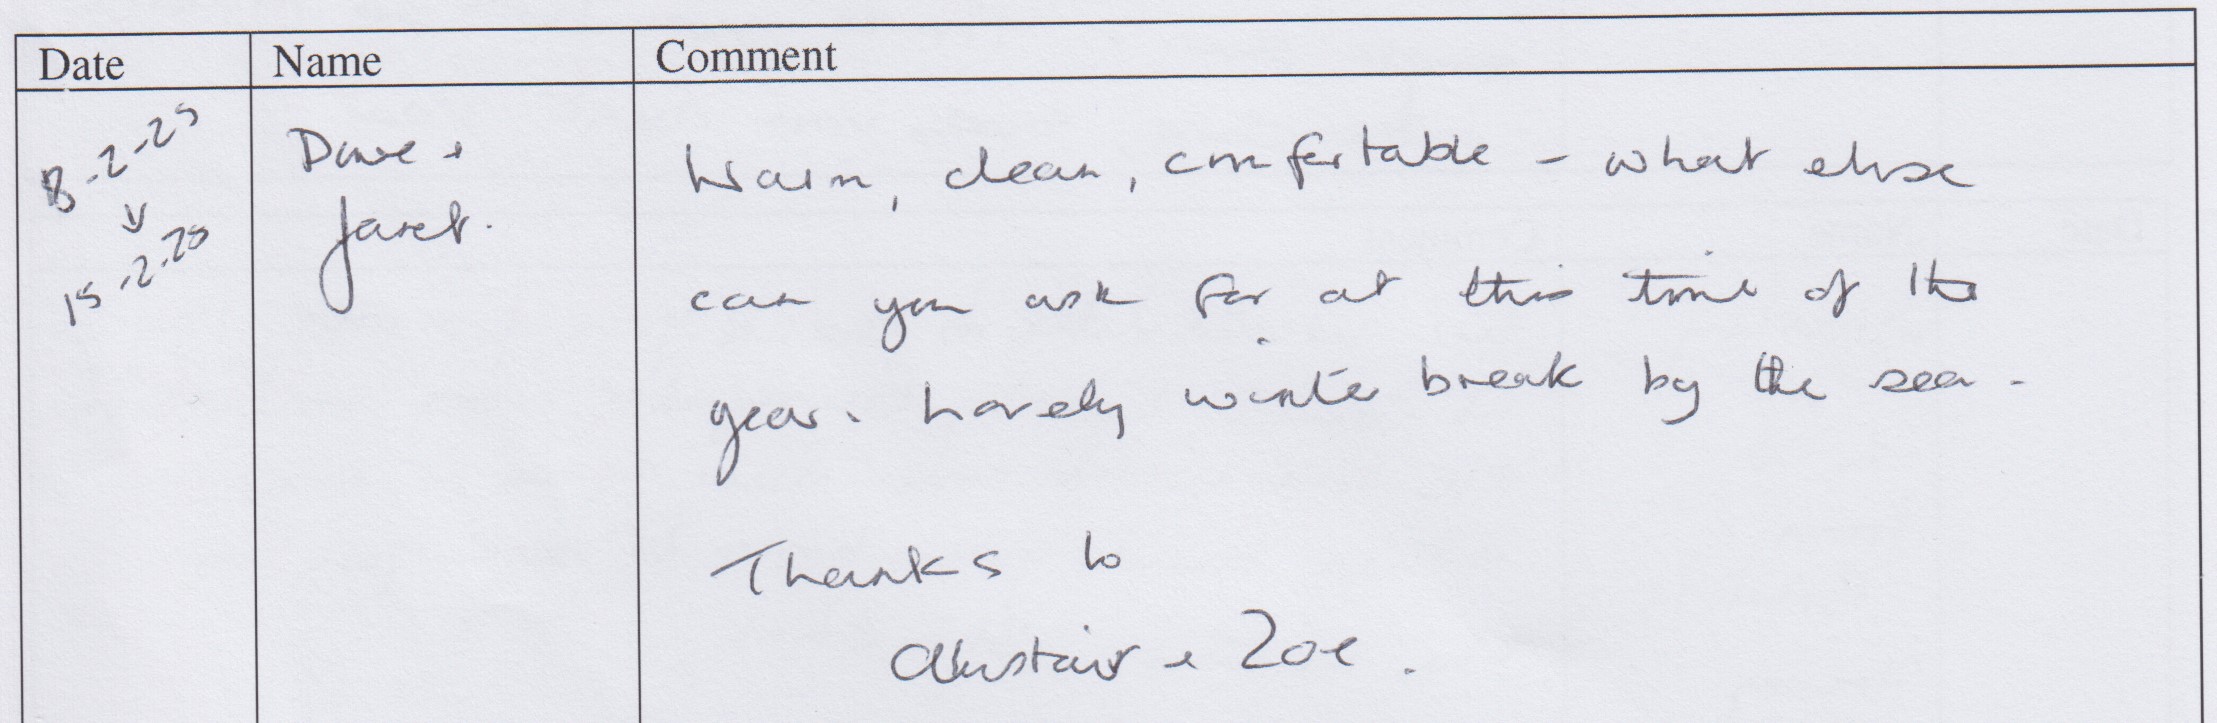 Date Name Comment
8-2-25
15-2-25
Dave +
Janet.
Warm, clean, comfortable - what else
can you ask for at this time of the
year. Lovely winter break by the sea.
Thanks to
Alastair + Zoe.